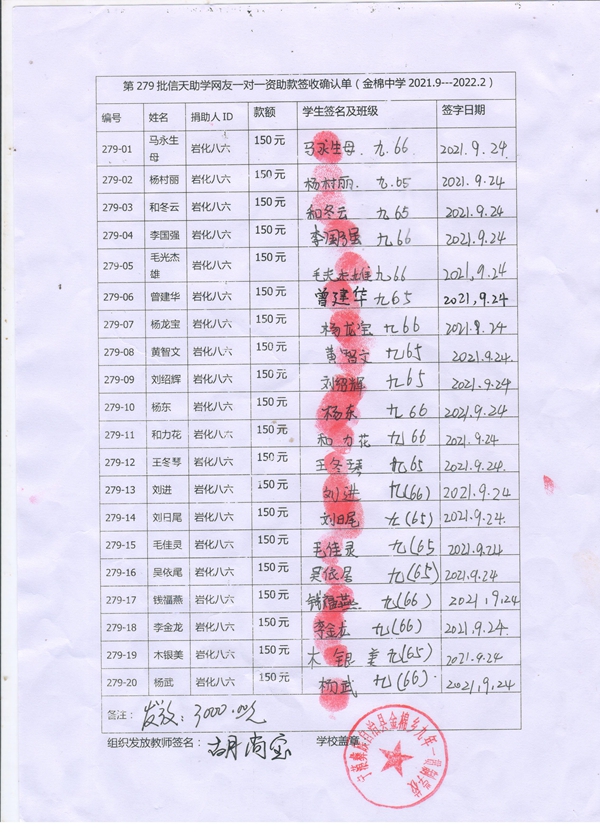 第 279 批信天助学网友一对一资助款签收确认单（金棉中学 2021.9---2022.2）
编号 姓名 捐助人 ID 款额 学生签名及班级 签字日期
279-01 马永生母 岩化八六 150 元 马永生母. 九.66 2021.9.24
279-02 杨村丽 岩化八六 150 元 杨村丽. 九.65 2021.9.24
279-03 和冬云 岩化八六 150 元 和冬云 九.65 2021.9.24
279-04 李国强 岩化八六 150 元 李国强 九.66 2021.9.24
279-05 毛光杰雄 岩化八六 150 元 毛光杰雄 九.66 2021.9.24
279-06 曾建华 岩化八六 150 元 曾建华 九.65 2021.9.24
279-07 杨龙宝 岩化八六 150 元 杨龙宝 九66 2021.9.24
279-08 黄智文 岩化八六 150 元 黄智文 九65 2021.9.24
279-09 刘绍辉 岩化八六 150 元 刘绍辉 九65 2021.9.24
279-10 杨东 岩化八六 150 元 杨东 九66 2021.9.24
279-11 和力花 岩化八六 150 元 和力花 九66 2021.9.24
279-12 王冬琴 岩化八六 150 元 王冬琴 九65 2021.9.24.
279-13 刘进 岩化八六 150 元 刘进 九(66) 2021.9.24
279-14 刘日尾 岩化八六 150 元 刘日尾 九(65) 2021.9.24.
279-15 毛佳灵 岩化八六 150 元 毛佳灵 九(65 2021.9.24
279-16 吴依尾 岩化八六 150 元 吴依尾 九(65) 2021.9.24
279-17 钱福燕 岩化八六 150 元 钱福燕 九(66) 2021.9.24
279-18 李金龙 岩化八六 150 元 李金龙 九(66) 2021.9.24.
279-19 木银美 岩化八六 150 元 木银美 九(65) 2021.9.24
279-20 杨武 岩化八六 150 元 杨武 九(66). 2021.9.24
备注： 发放：3000.00元
组织发放教师签名： 胡尚宝 学校盖章
宁蒗彝族自治县金棉乡九年一贯制学校